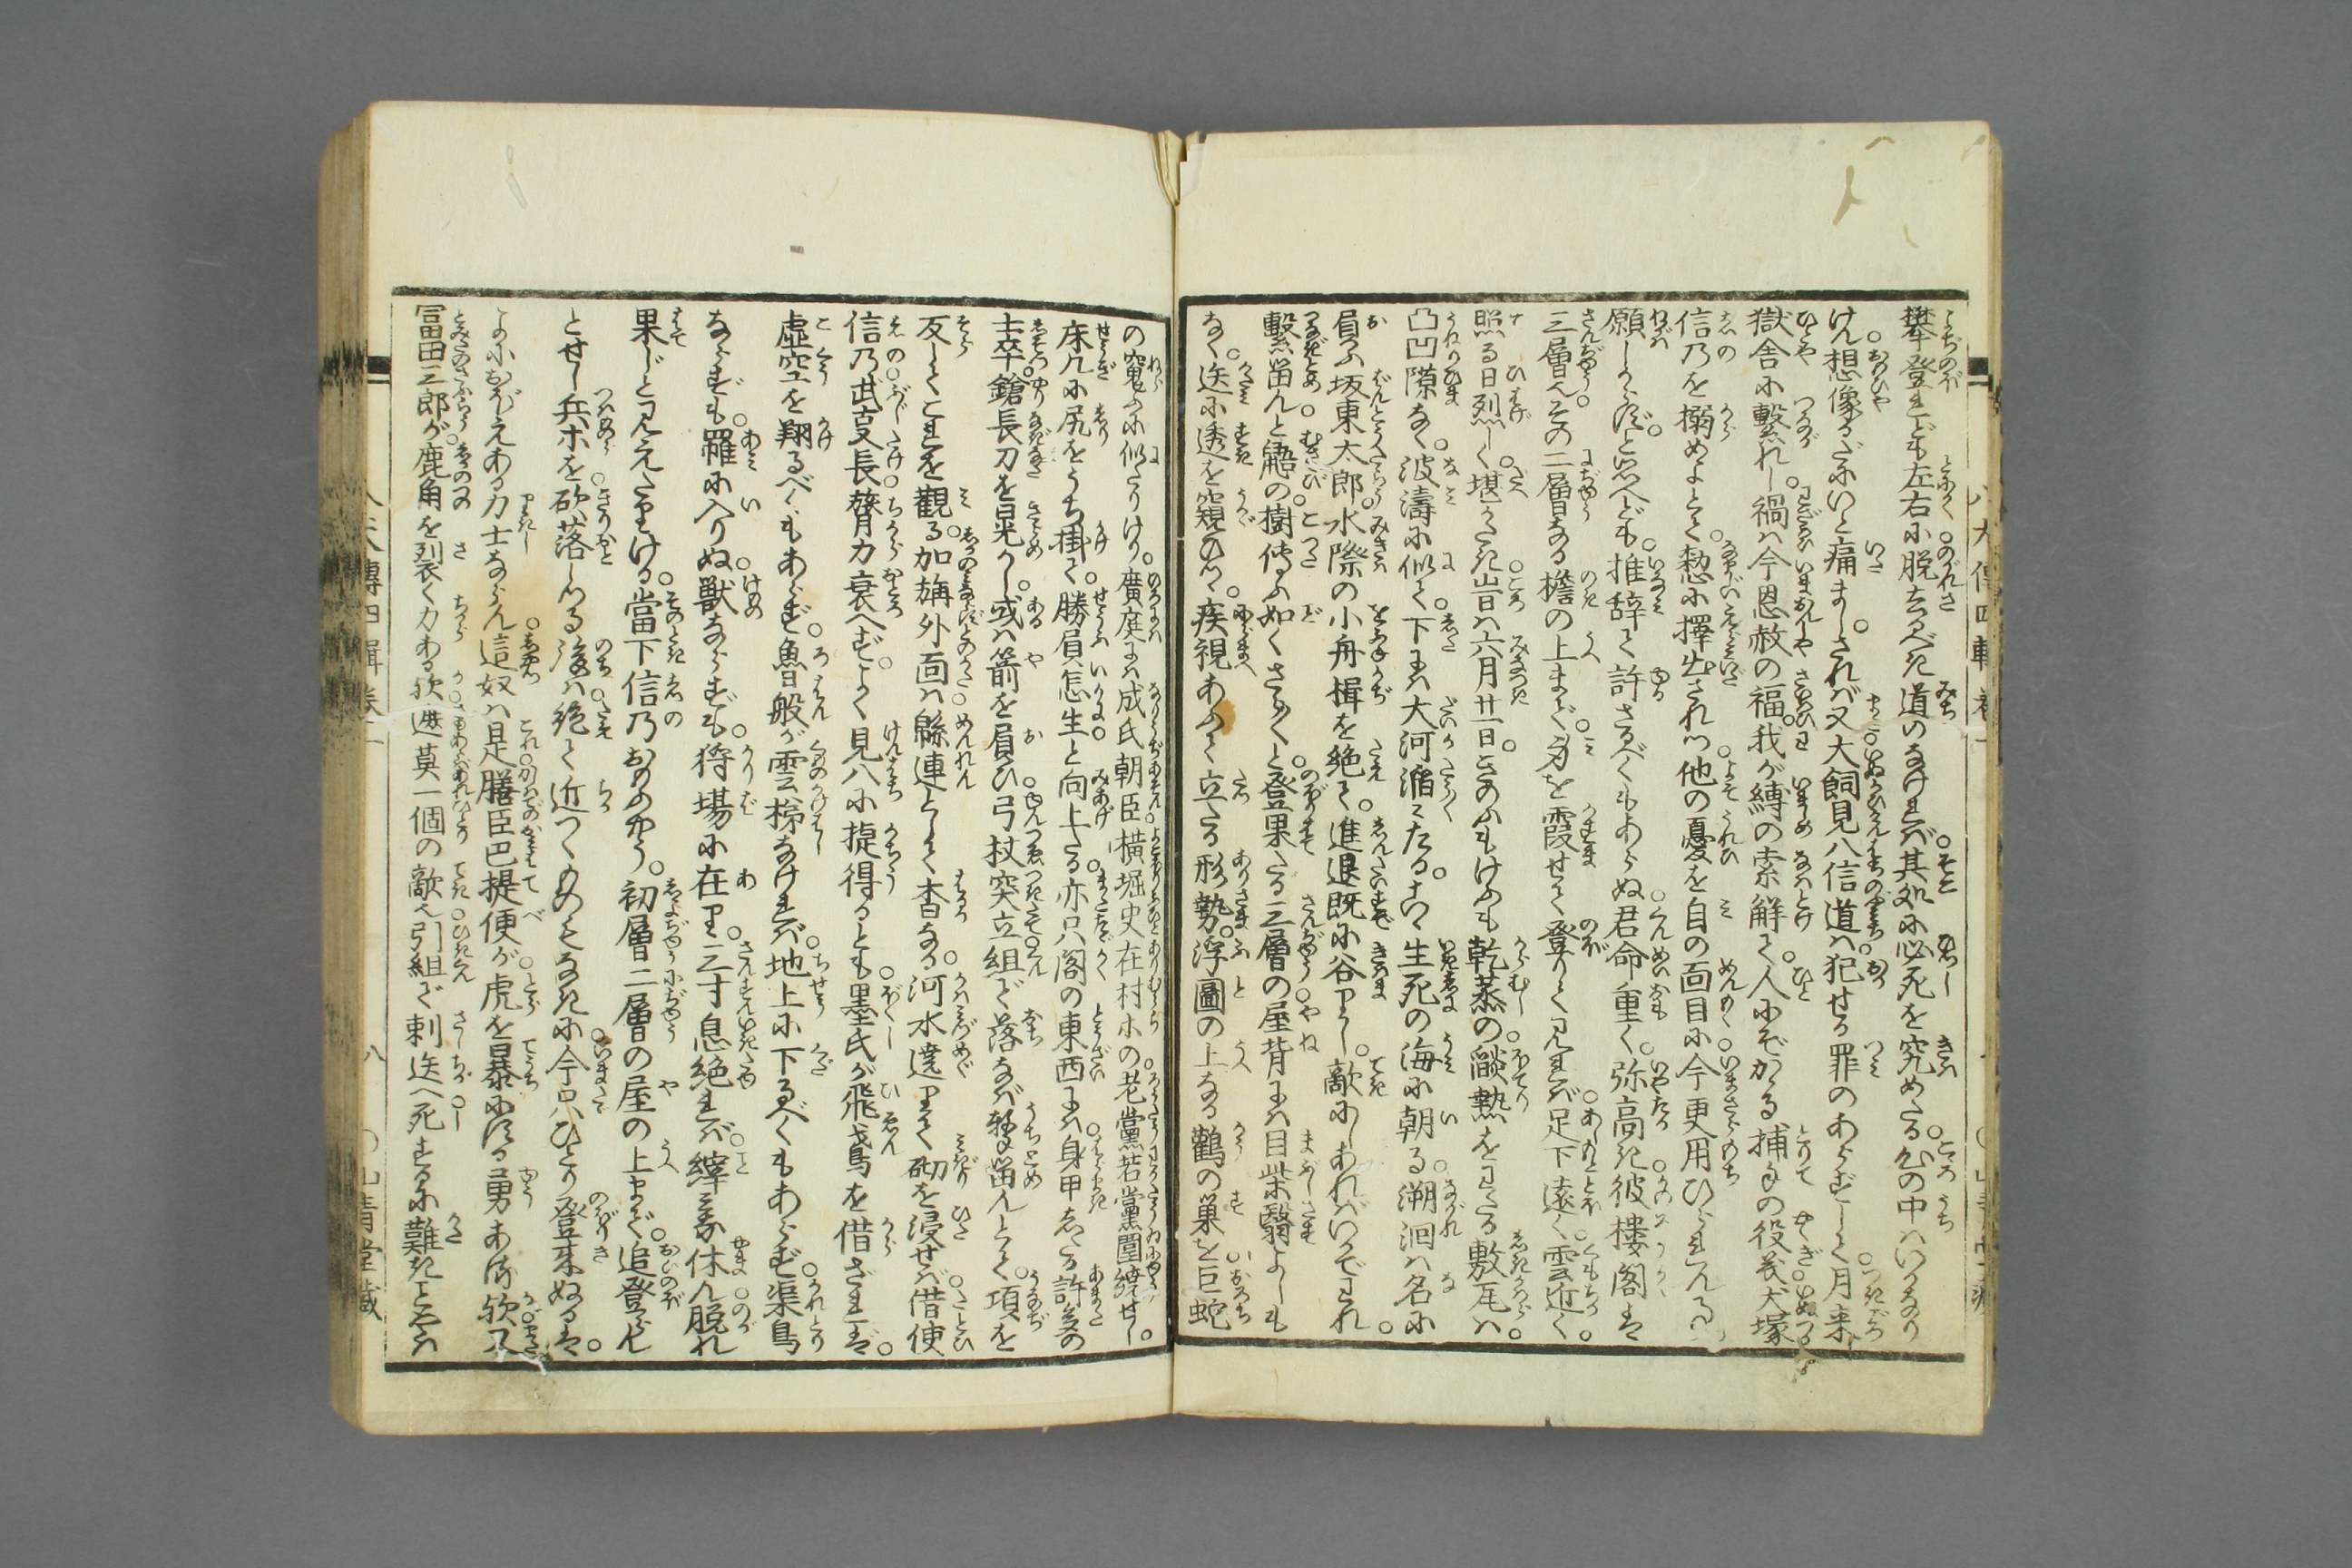 攀登れども左右に脱去るべき道のなければ其処に必死を究めたる心の中はいかなり
けん想像るだにいと痛まし。されば又犬飼見八信道は犯せる罪のあらずして月来
獄舎に繋れし禍は今恩赦の福。我が縛の索解て人にぞかゝる捕手の役義犬塚
信乃を搦めよとて愁に擇出されつ他の憂を自の面目に今更用ひられん事
願しからずと思へども推辞て許さるべくもあらぬ君命重く弥高き彼楼閣は
三層也その二層なる檐の上まで身を霞せて登りて見れば足下遠く雲近く
照る日烈しく堪がたき当日は六月廿一日きのふもけふも乾蒸の燄熱をわたる敷瓦は
凸凹隙なく波濤に似て下には大河滔々たるこゝ生死の海に朝る溯洄は名に
負ふ坂東太郎水際の小舟楫を絶て進退既に谷りし敵にしあればいかでわれ
繋留んと鼯の樹傳ふ如くさら〳〵と登果たる三層の屋背には目柴翳よしも
なく迭に透を窺ひつゝ疾視あふて立たる形勢浮圖の上なる鸛の巣を巨蛇
の窺ふに似たりけり。廣庭には成氏朝臣横堀史在村ホの老黨若黨圍繞せし
床几に尻をうち掛て勝負怎生と向上たる亦只閣の東西には身甲したる許多の
士卒鎗長刀を晃かし或は箭を負ひ弓杖突立組で落なば撃留んとて項を
反らしてこれを觀る加旃外面は緜連として杳なる河水遶りて砌を浸せば借使
信乃武芸長膂力衰へずよく見八に捷得るとも墨氏が飛鳶を借ざれば
虚空を翔るべくもあらず魯般が雲梯なければ地上に下るべくもあらず渠鳥
ならずも羅に入りぬ獣ならずも狩場に在り三寸息絶れば緯みな休ん脱れ
果じと見えたりける當下信乃おもふやう初層二層の屋の上まで追登らん
とせし兵ホを砍落しつる後は絶て近つくものもなきに今只ひとり登来ぬるは
よにおぼえある力士ならん這奴は是膳臣巴提便が虎を暴にする勇ある歟又
冨田三郎が鹿角を裂く力ある歟遮莫一個の敵也引組で刺迭へ死するに難きことやは
八犬傳四輯巻一
八
○山青堂藏